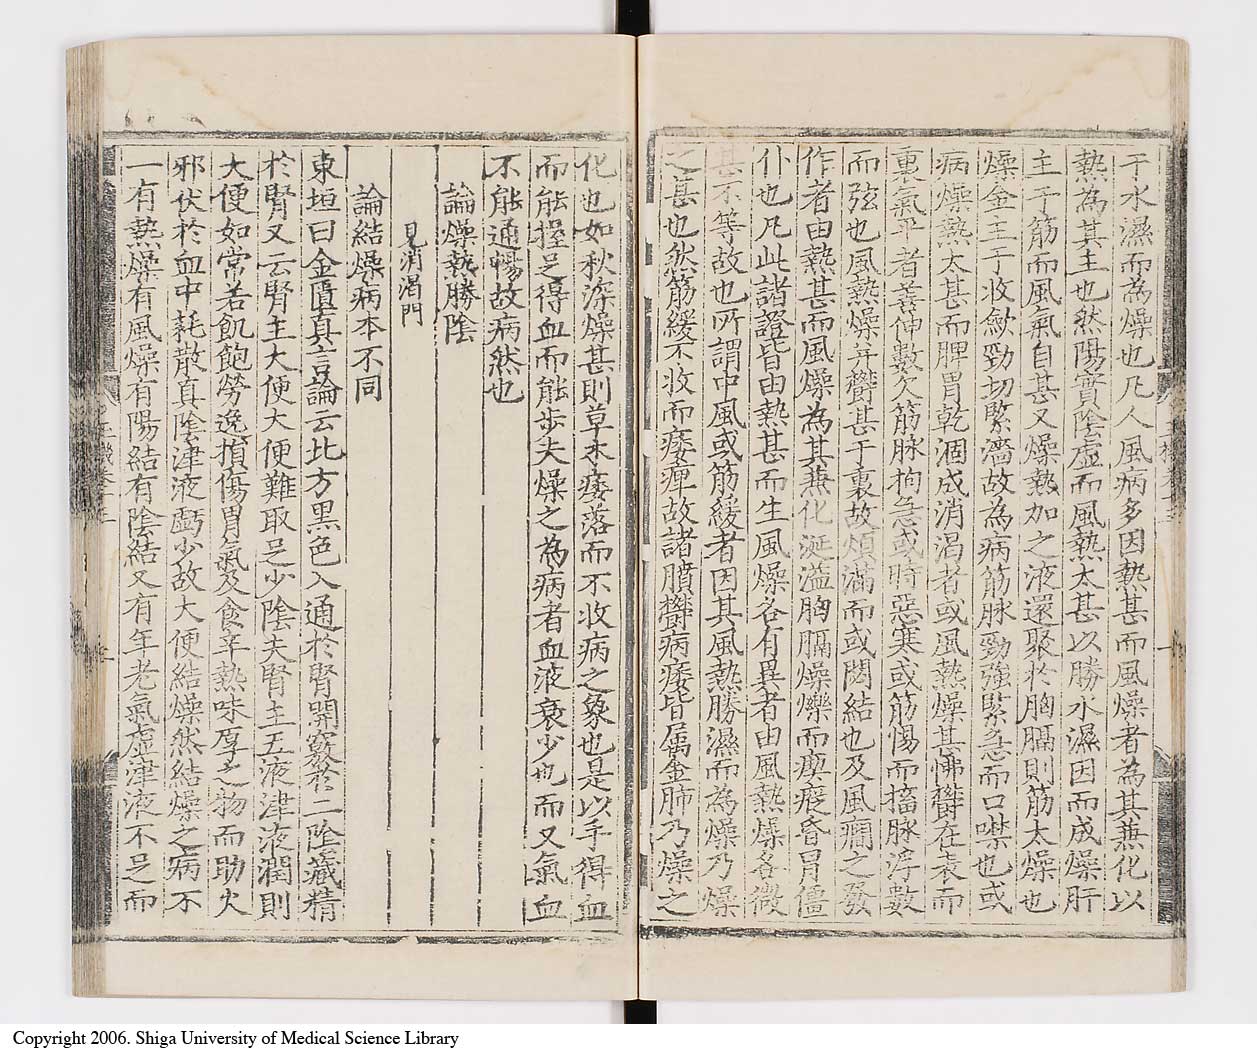 于水濕而為燥也凡人風病多因熱甚而風燥者為其兼化以
熱為其主也然陽實陰虛而風熱太甚以勝水濕因而成燥肝
主于筋而風氣自甚又燥熱加之液還聚於胸膈則筋太燥也
燥金主于收斂勁切緊澀故為病筋脉勁強緊急而口噤也或
病燥熱太甚而脾胃乾涸成消渴者或風熱燥甚怫鬱在表而
裏氣平者善伸數欠筋脉拘急或時惡寒或筋惕而搐脉浮數
而弦也風熱燥并鬱甚于裏故煩滿而或閟結也及風癇之發
作者由熱甚而風燥為其兼化涎溢胸膈燥爍而瘈瘲昏冒僵
仆也凡此諸證皆由熱甚而生風燥各有異者由風熱燥各微
甚不等故也所謂中風或筋緩者因其風熱勝濕而為燥乃燥
之甚也然筋緩不收而痿痺故諸膹鬱病痿皆属金肺乃燥之
化也如秋深燥甚則草木痿落而不收病之象也是以手得血
而能握足得血而能步夫燥之為病者血液衰少也而又氣血
不能通暢故病然也
論燥熱勝陰
見消渴門
論結燥病本不同
東垣曰金匱真言論云北方黒色入通於腎開竅於二陰藏精
於腎又云腎主大便大便難取足少陰夫腎主五液津液潤則
大便如常若飢飽勞逸損傷胃氣及食辛熱味厚之物而助火
邪伏於血中耗散真陰津液虧少故大便結燥然結燥之病不
一有熱燥有風燥有陽結有陰結又有年老氣虛津液不足而
Copyright 2006. Shiga University of Medical Science Library